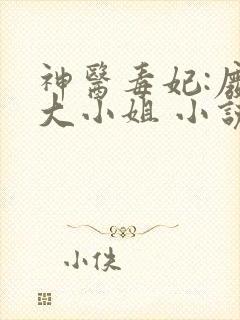 神醫毒妃:
大小姐 小說
小佚